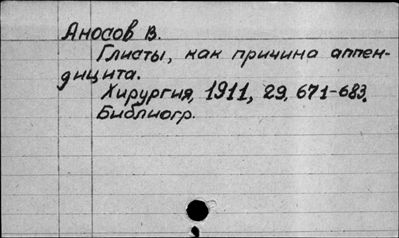 Аносов В.
Глисты, как причина аппен-
дицита.
Хирургия, 1911, 29, 671-683.
Библиогр.